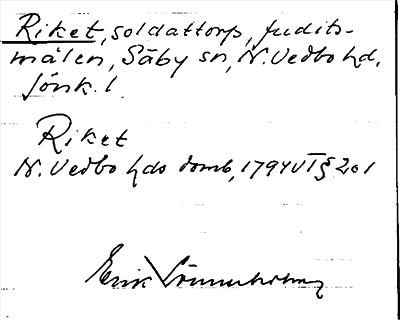 Riket, soldattorp, Judits-
målen, Säby sn, N. Vedbo hd,
Jönk. l.
Riket
N. Vedbo hds domb, 1794 VT § 201
Erik